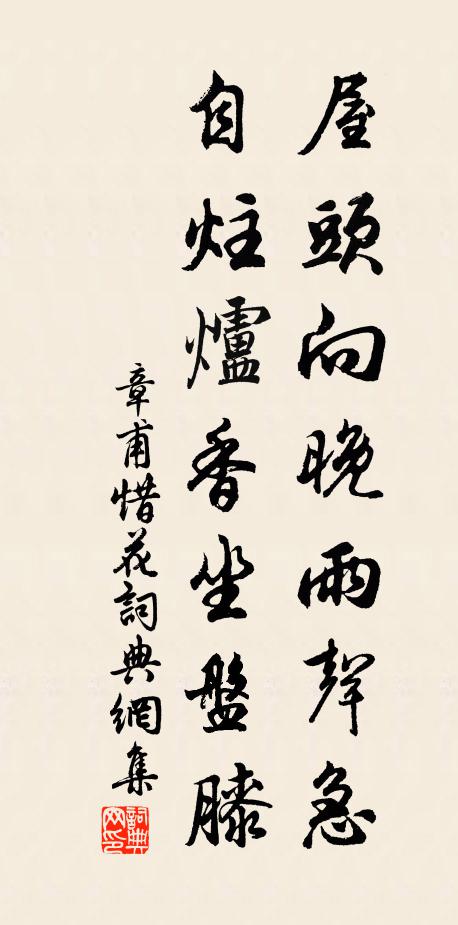 屋頭向晚雨聲急
自炷爐香坐盤膝
章甫惜花詞典網集
詞典网印